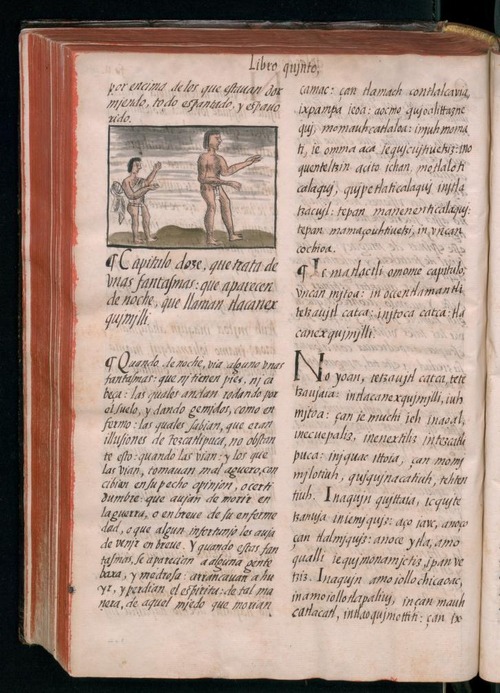 Libro quinto,
por encima, de los que estauan dor
miendo, todo espantado, y espauo
rido.
¶ Capitulo doze, que trata de
vnas fantasmas: que aparecen
de noche, que llaman tlacanex
quimilli.
¶ Quando, de noche, via alguno vnas
fantasmas: que ni tienen pies, ni ca
beça: las quales andan rodando por
el suelo, y dando gemjdos, como en
fermo: las quales sabian, que eran
illusiones de tezcatlipuca, no obstan
te esto: quando las vian: y los que
las vian, tomauan mal aguero, con
cibian en su pecho opinion, o certi
dumbre: que aujan de morir en
la guerra, o en breue de su enferme
dad, o que algun infortunjo les auja
de venir en breue. Y quando estas fan
tasmas, se aparecian a alguna gente
baxa, y medrosa: arrancauan a hu
yr, y perdian el espiritu: de tal ma
nera, de aquel mjedo que morian
camac: çan tlamach contlalcavia,
ixpampa ieoa: aocmo qujoalittazne
quj, momauhcatlaloa: injuh moma
ti, ie omma aca,
quenteltzin acito ichan, motlaloti
calaquj, quipetlaticalaquj in jtla
tzacujl: tepan manenenticalaquj:
tepan mamaçouhtivetzi, in vncan
cochioa.
¶ Ic matlactli omome capitulo,
vncan mjtoa: in occentlamantli
tetzaujtl catca: injtoca catca: tla
canexqujmjlli.
No yoan, tetzaujtl catca, tete
tzaujaia: in tlacanexqujmjlli, iuh
mjtoa: çan ie muchi ieh inaoal,
inecuepaliz, inenextiliz in tezcatli
puca: injquac ittoia, çan momj
mjlotiuh, qujqujnacatiuh, tehten
tiuh. Inaqujn qujttaia, ic qujte
tzauja in ie mjqujz: aço iaoc, anoço
çan tlalmjqujz: anoce ytla, amo
qualli ie qujmonamjctiz, ipan ve
tziz. Inaqujn amo iollochicaoac,
in amo iollotlapaliuj, in çan mauh
catlacatl, intlaoqujmottiti: çan ix